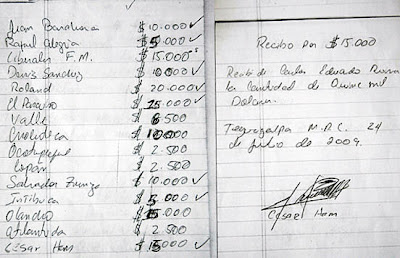 Juan Barahona $10.000 ✓
Rafael Alegria $5.000 ✓
Liberales F.M. $15.000
Denis Sanchez $10000 ✓
Roland $20.000 ✓
El Paraiso $25.000 ✓
Valle $8.500
Choluteca $10.000
Ocotepeque $2.500
Copán $2.500
Salvador Zuniga $10.000 ✓
Intibuca $5.000 ✓
Olancho $15.000
Atlantida $2.500
César Ham $15000 ✓
Recibo Por $15.000
Recibi de Carlos Eduardo
la Cantidad de Quince mil
Dolares.
Tegucigalpa M.D.C. 24
de Julio de 2009.
César Ham